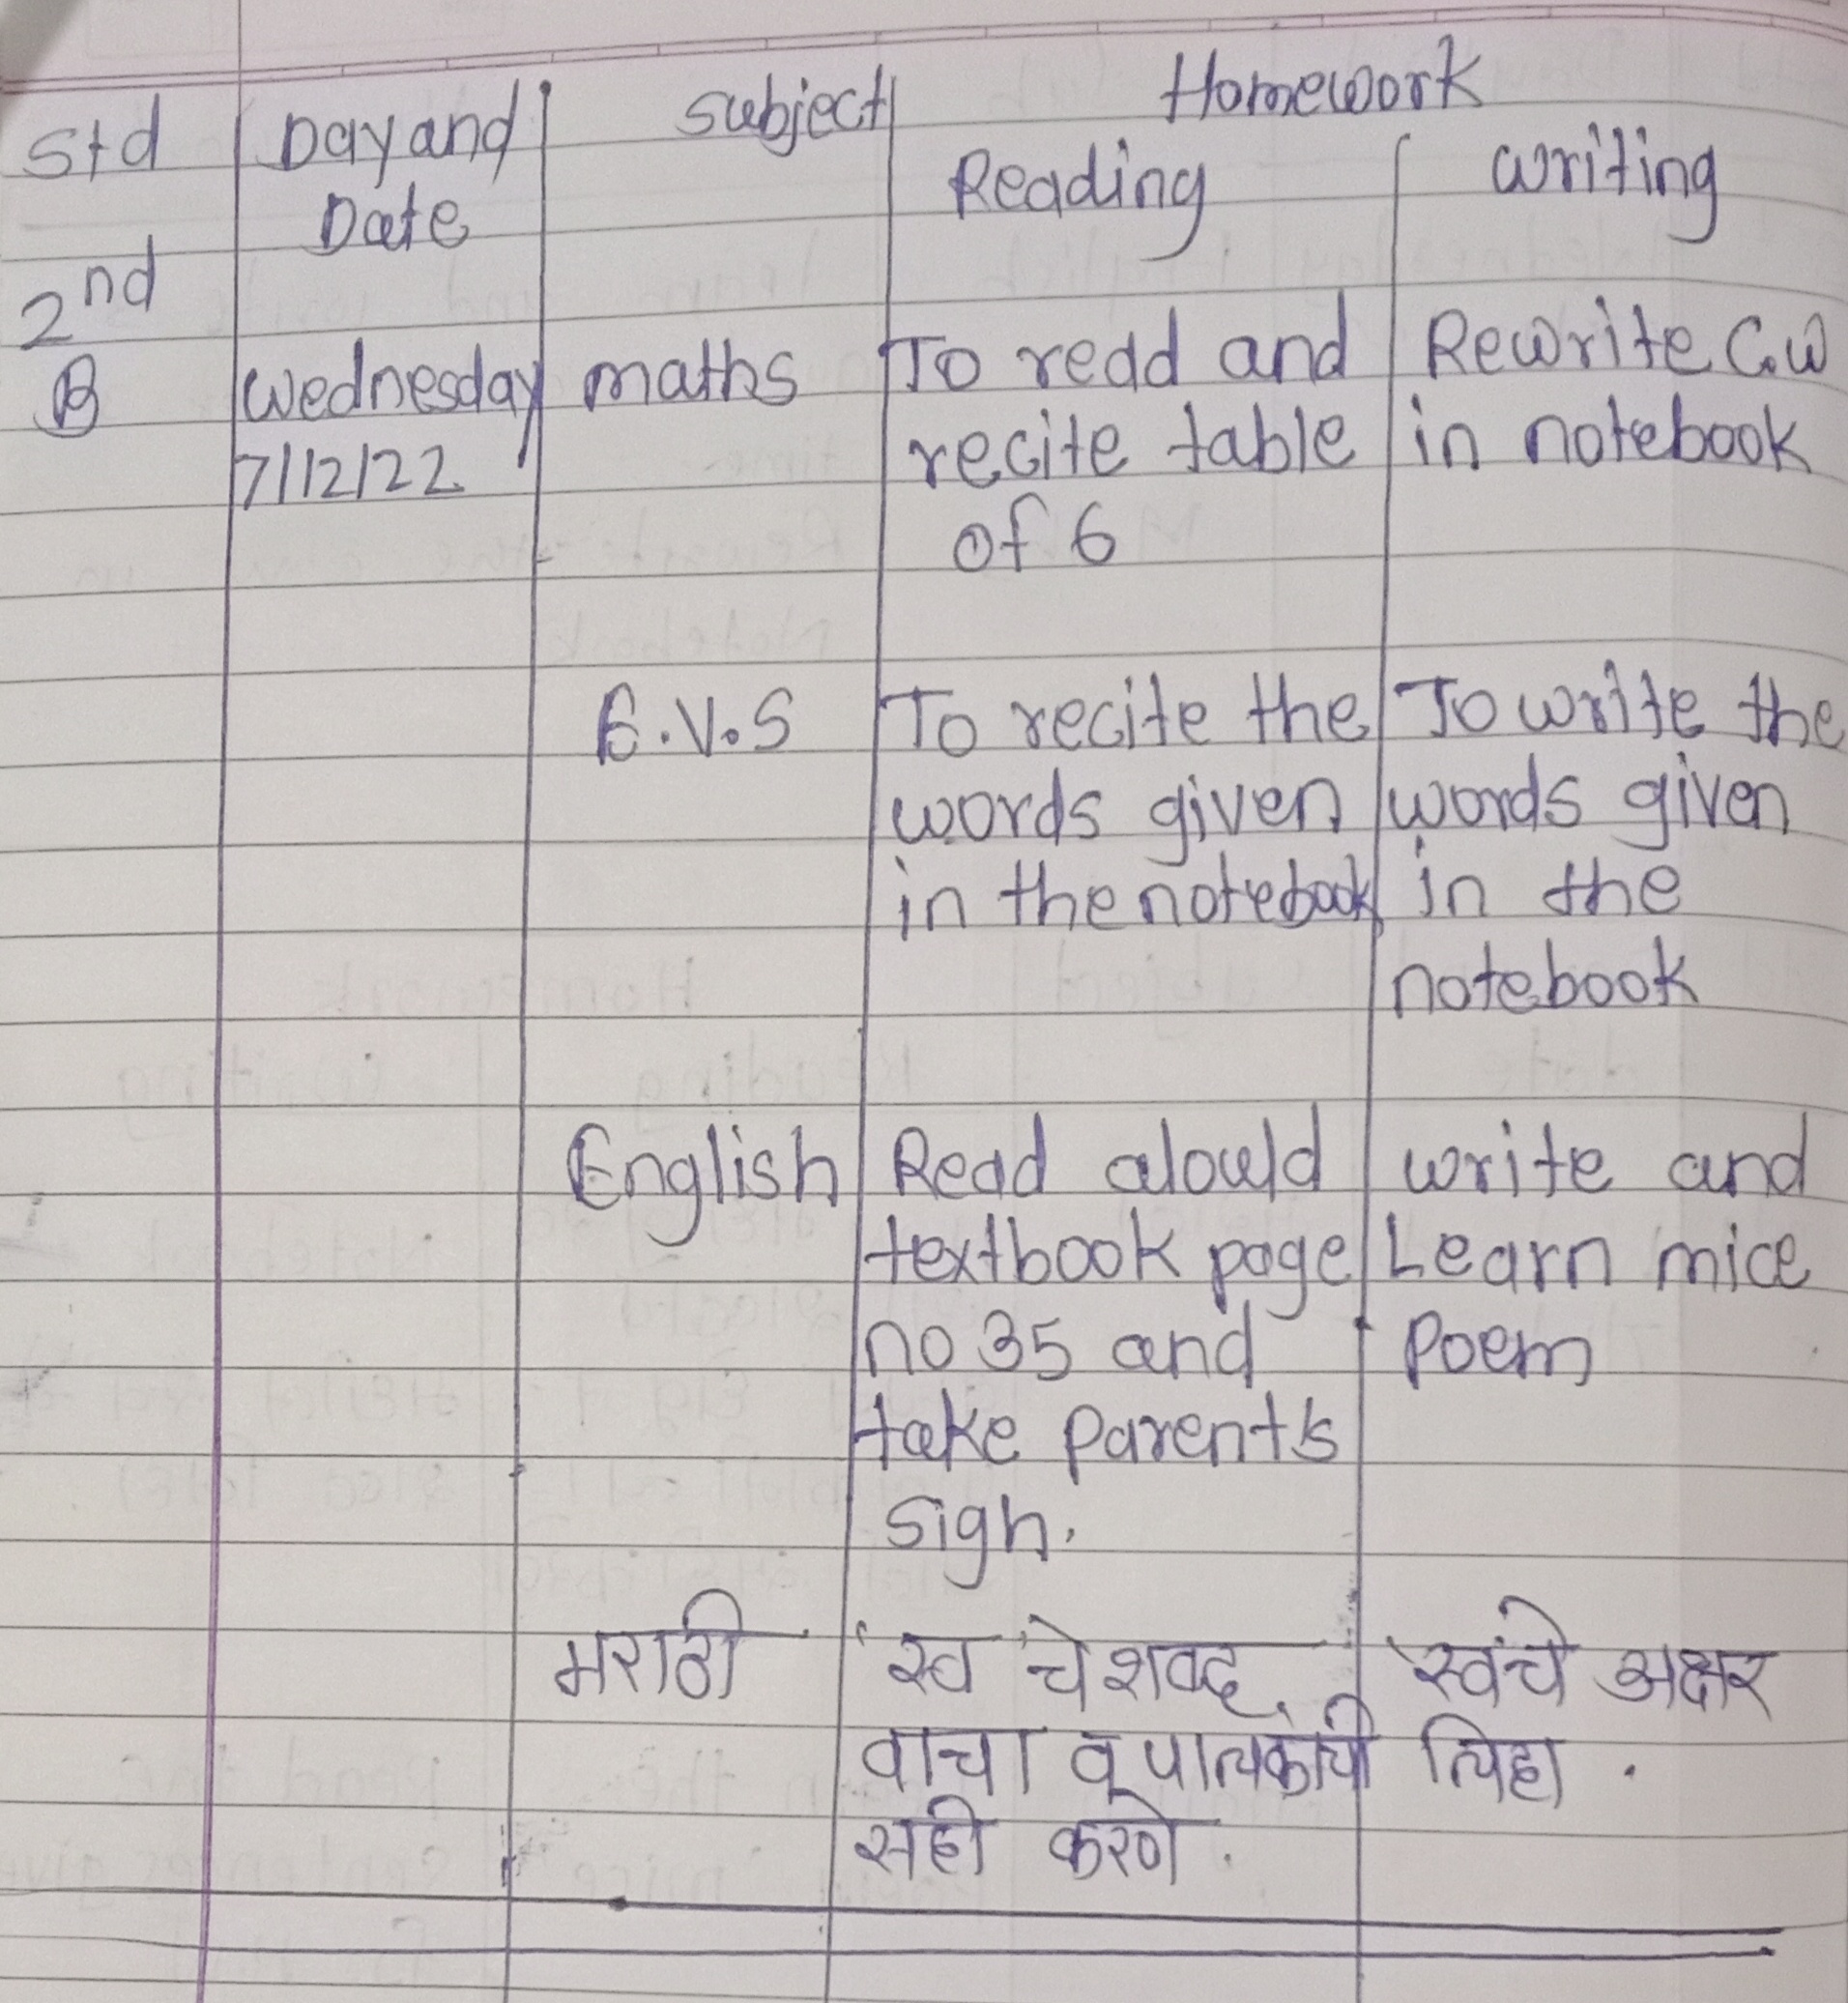 Std Day and subject Homework
Date Reading writing
2nd
B wednesday maths To redd and Rewrite C.W
7/12/22 recite table in notebook
of 6
E.V.S To recite the To write the
words given words given
in the notebook in the
notebook
English Read alould write and
textbook page Learn mice
no 35 and Poem
take parent's
sign.
मराठी 'स्व' चे शब्द स्वचे अक्षर
वाचा व पालकांची लिहा .
सही करणे .